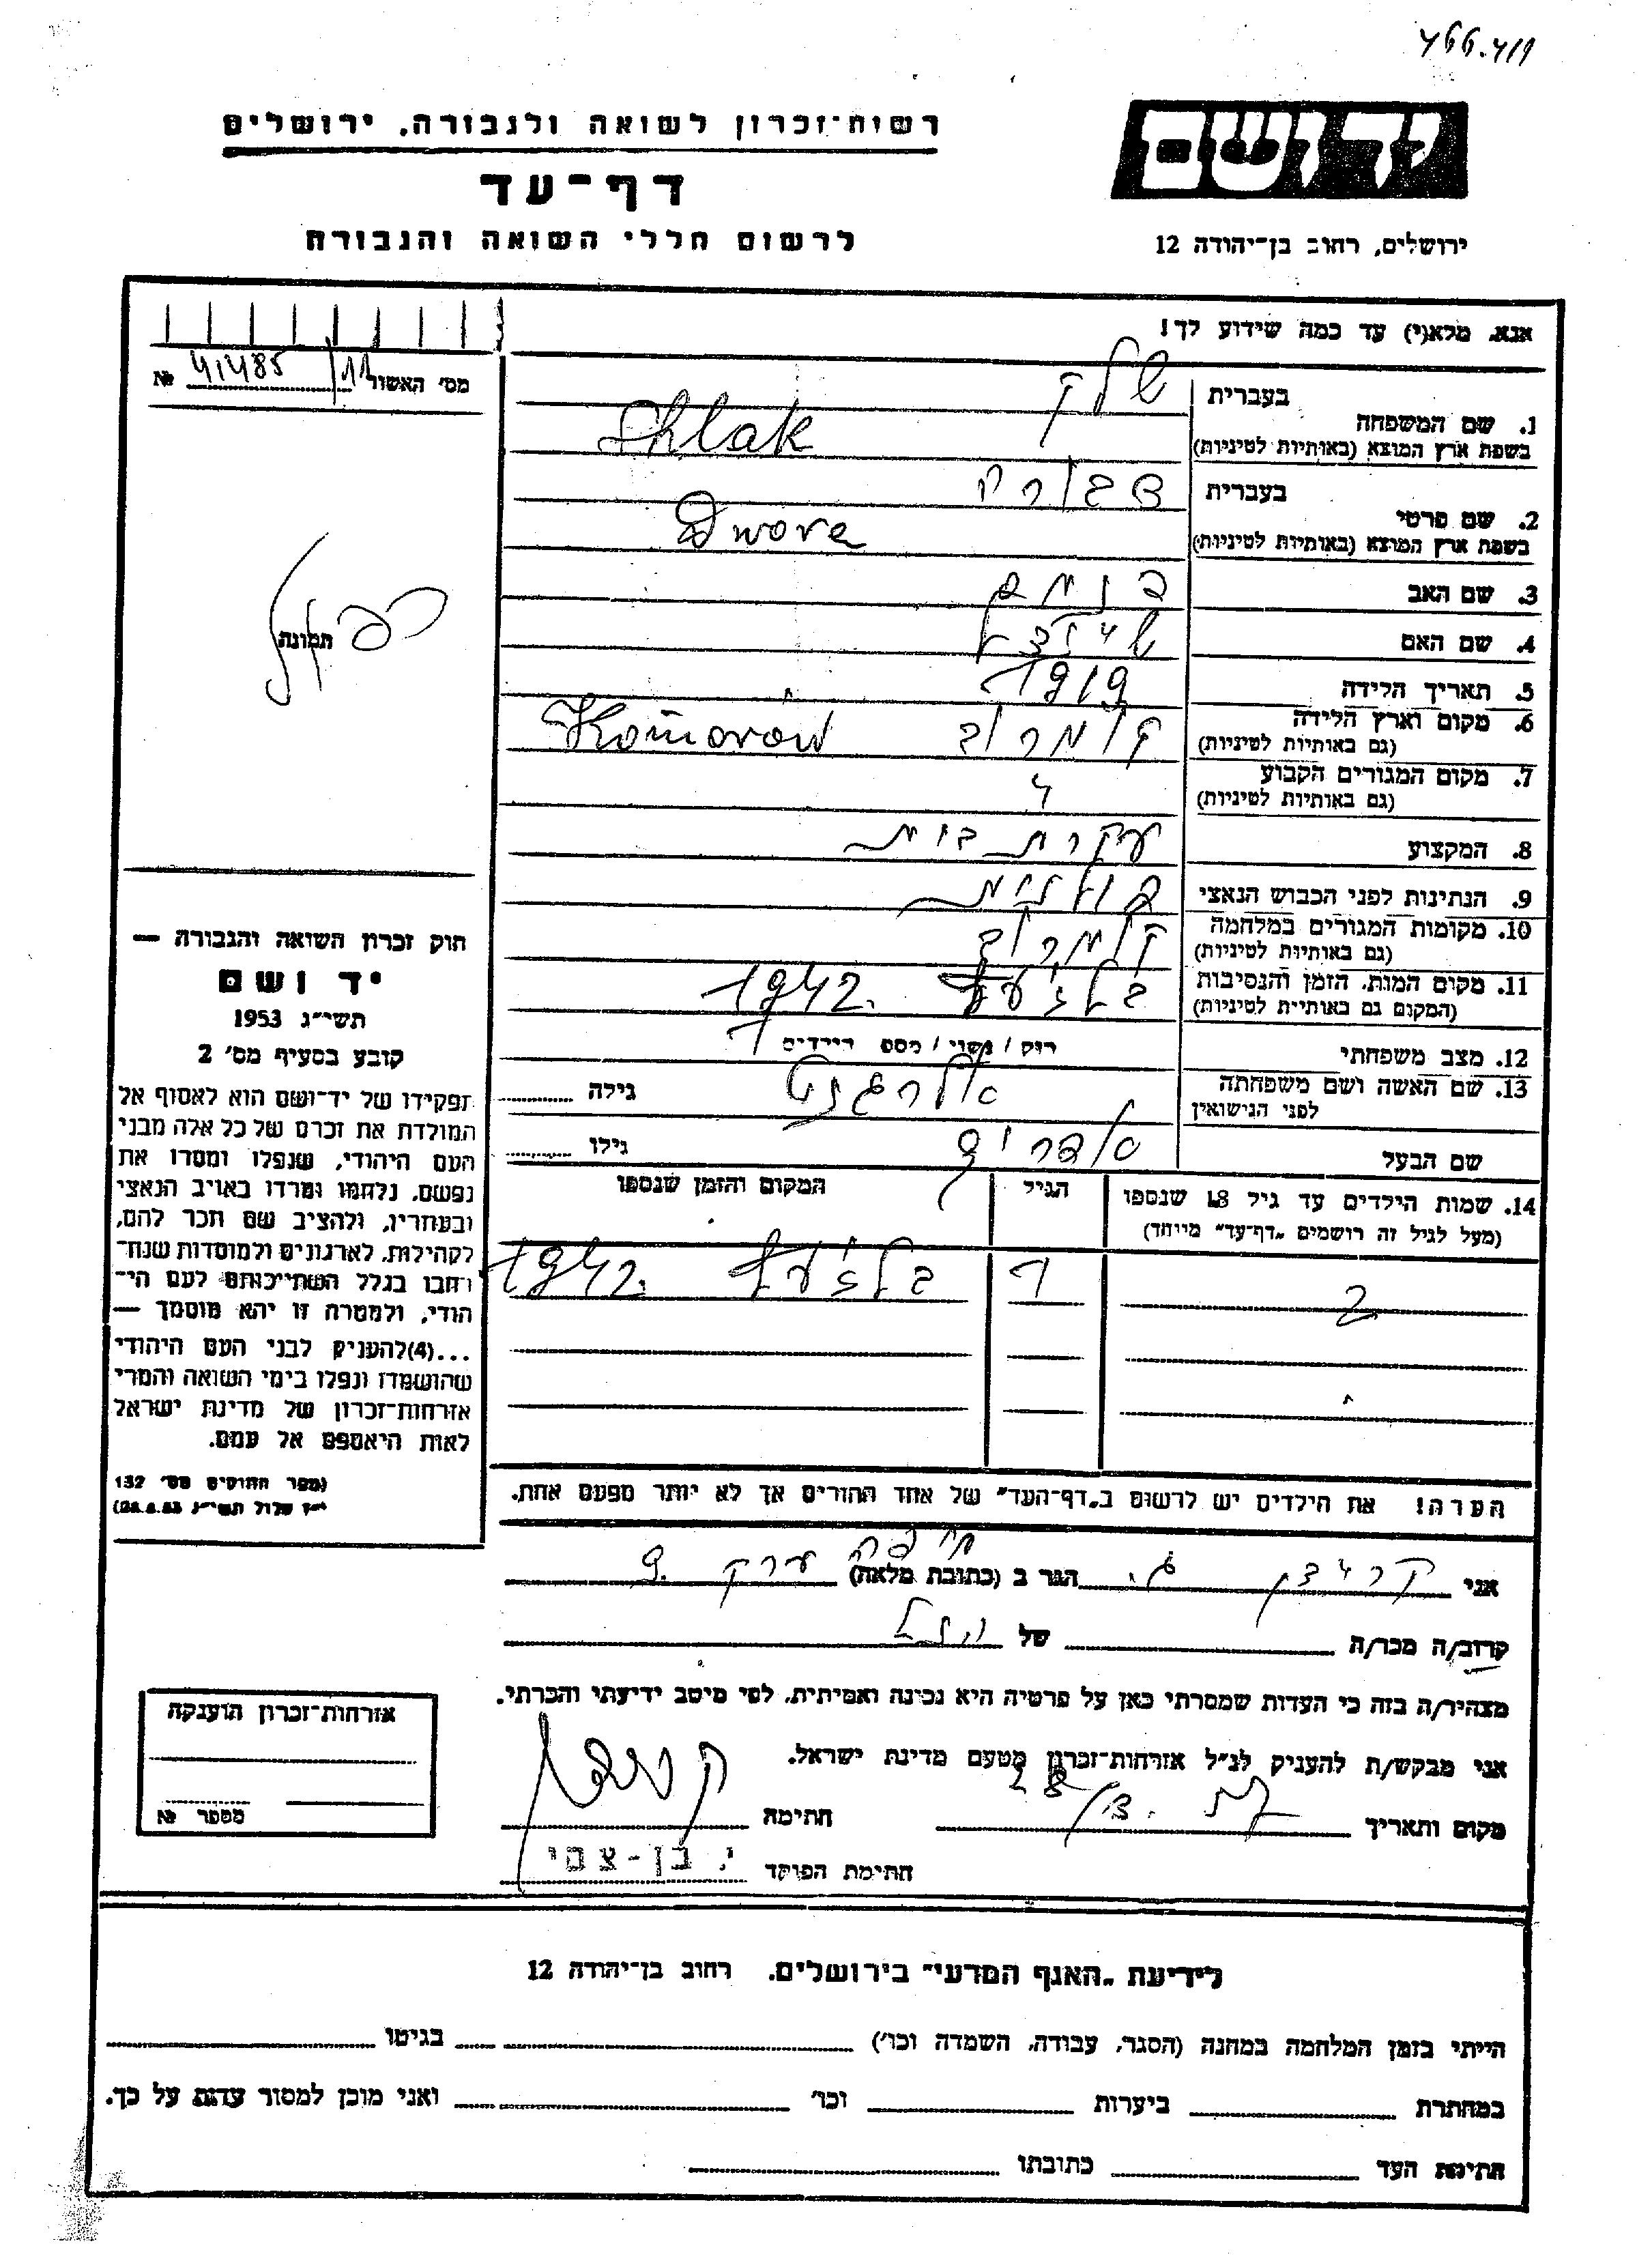 רשות-זכרון לשואה ולגבורה, ירושלים
דף-עד
לרשום חללי השואה והגבורה
ידושם
ירושלים, רחוב בן-יהודה 12
אנא, מלא(י) עד כמה שידוע לך!
מס' האשור № 41485/11
1. שם המשפחה בעברית שלק
בשפת ארץ המוצא (באותיות לטיניות) Shlak
2. שם פרטי בעברית דבורה
בשפת ארץ המוצא (באותיות לטיניות) Dwora
3. שם האב
4. שם האם
5. תאריך הלידה 1919
6. מקום וארץ הלידה (גם באותיות לטיניות) קומרוב Komorów
7. מקום המגורים הקבוע (גם באותיות לטיניות)
8. המקצוע עקרת בית
9. הנתינות לפני הכבוש הנאצי פולנית
10. מקומות המגורים במלחמה (גם באותיות לטיניות) קומרוב
11. מקום המות, הזמן והנסיבות (המקום גם באותיות לטיניות) בלזעץ 1942.
12. מצב משפחתי רוק / נשוי / מספ הילדים
13. שם האשה ושם משפחתה לפני הנישואין גילה
שם הבעל גילו
14. שמות הילדים עד גיל 18 שנספו (מעל לגיל זה רושמים "דף-עד" מיוחד)
הגיל
המקום והזמן שנספו
2
בלזעץ 1942.
הערה! את הילדים יש לרשום ב"דף-העד" של אחד ההורים אך לא יותר מפעם אחת.
תמונה
חוק זכרון השואה והגבורה —
יד ושם
תשי"ג 1953
קובע בסעיף מס' 2
תפקידו של יד-ושם הוא לאסוף אל
המולדת את זכרם של כל אלה מבני
העם היהודי, שנפלו ומסרו את
נפשם, נלחמו ומרדו באויב הנאצי
ובעוזריו, ולהציב שם וזכר להם,
לקהילות, לארגונים ולמוסדות שנח-
רבו בגלל השתייכותם לעם הי-
הודי, ולמטרה זו יהא מוסמך —
...(4) להעניק לבני העם היהודי
שהושמדו ונפלו בימי השואה והמרי
אזרחות-זכרון של מדינת ישראל
לאות היאספם אל עמם.
(ספר החוקים מס' 132
י"ז אלול תשי"ג 28.8.53)
אני הגר ב (כתובת מלאה) חיפה
קרוב/ה מכר/ה של
מצהיר/ה בזה כי העדות שמסרתי כאן על פרטיה היא נכונה ואמיתית, לפי מיטב ידיעתי והכרתי.
אני מבקש/ת להעניק לנ"ל אזרחות-זכרון מטעם מדינת ישראל.
מקום ותאריך חתימה
חתימת הפוקד י. בן-צמי
אזרחות-זכרון הוענקה
מספר №
לידיעת "האגף המדעי" בירושלים, רחוב בן-יהודה 12
הייתי בזמן המלחמה במחנה (הסגר, עבודה, השמדה וכו') בגיטו
במחתרת ביערות וכו' ואני מוכן למסור עדות על כך.
חתימת העד כתובתו